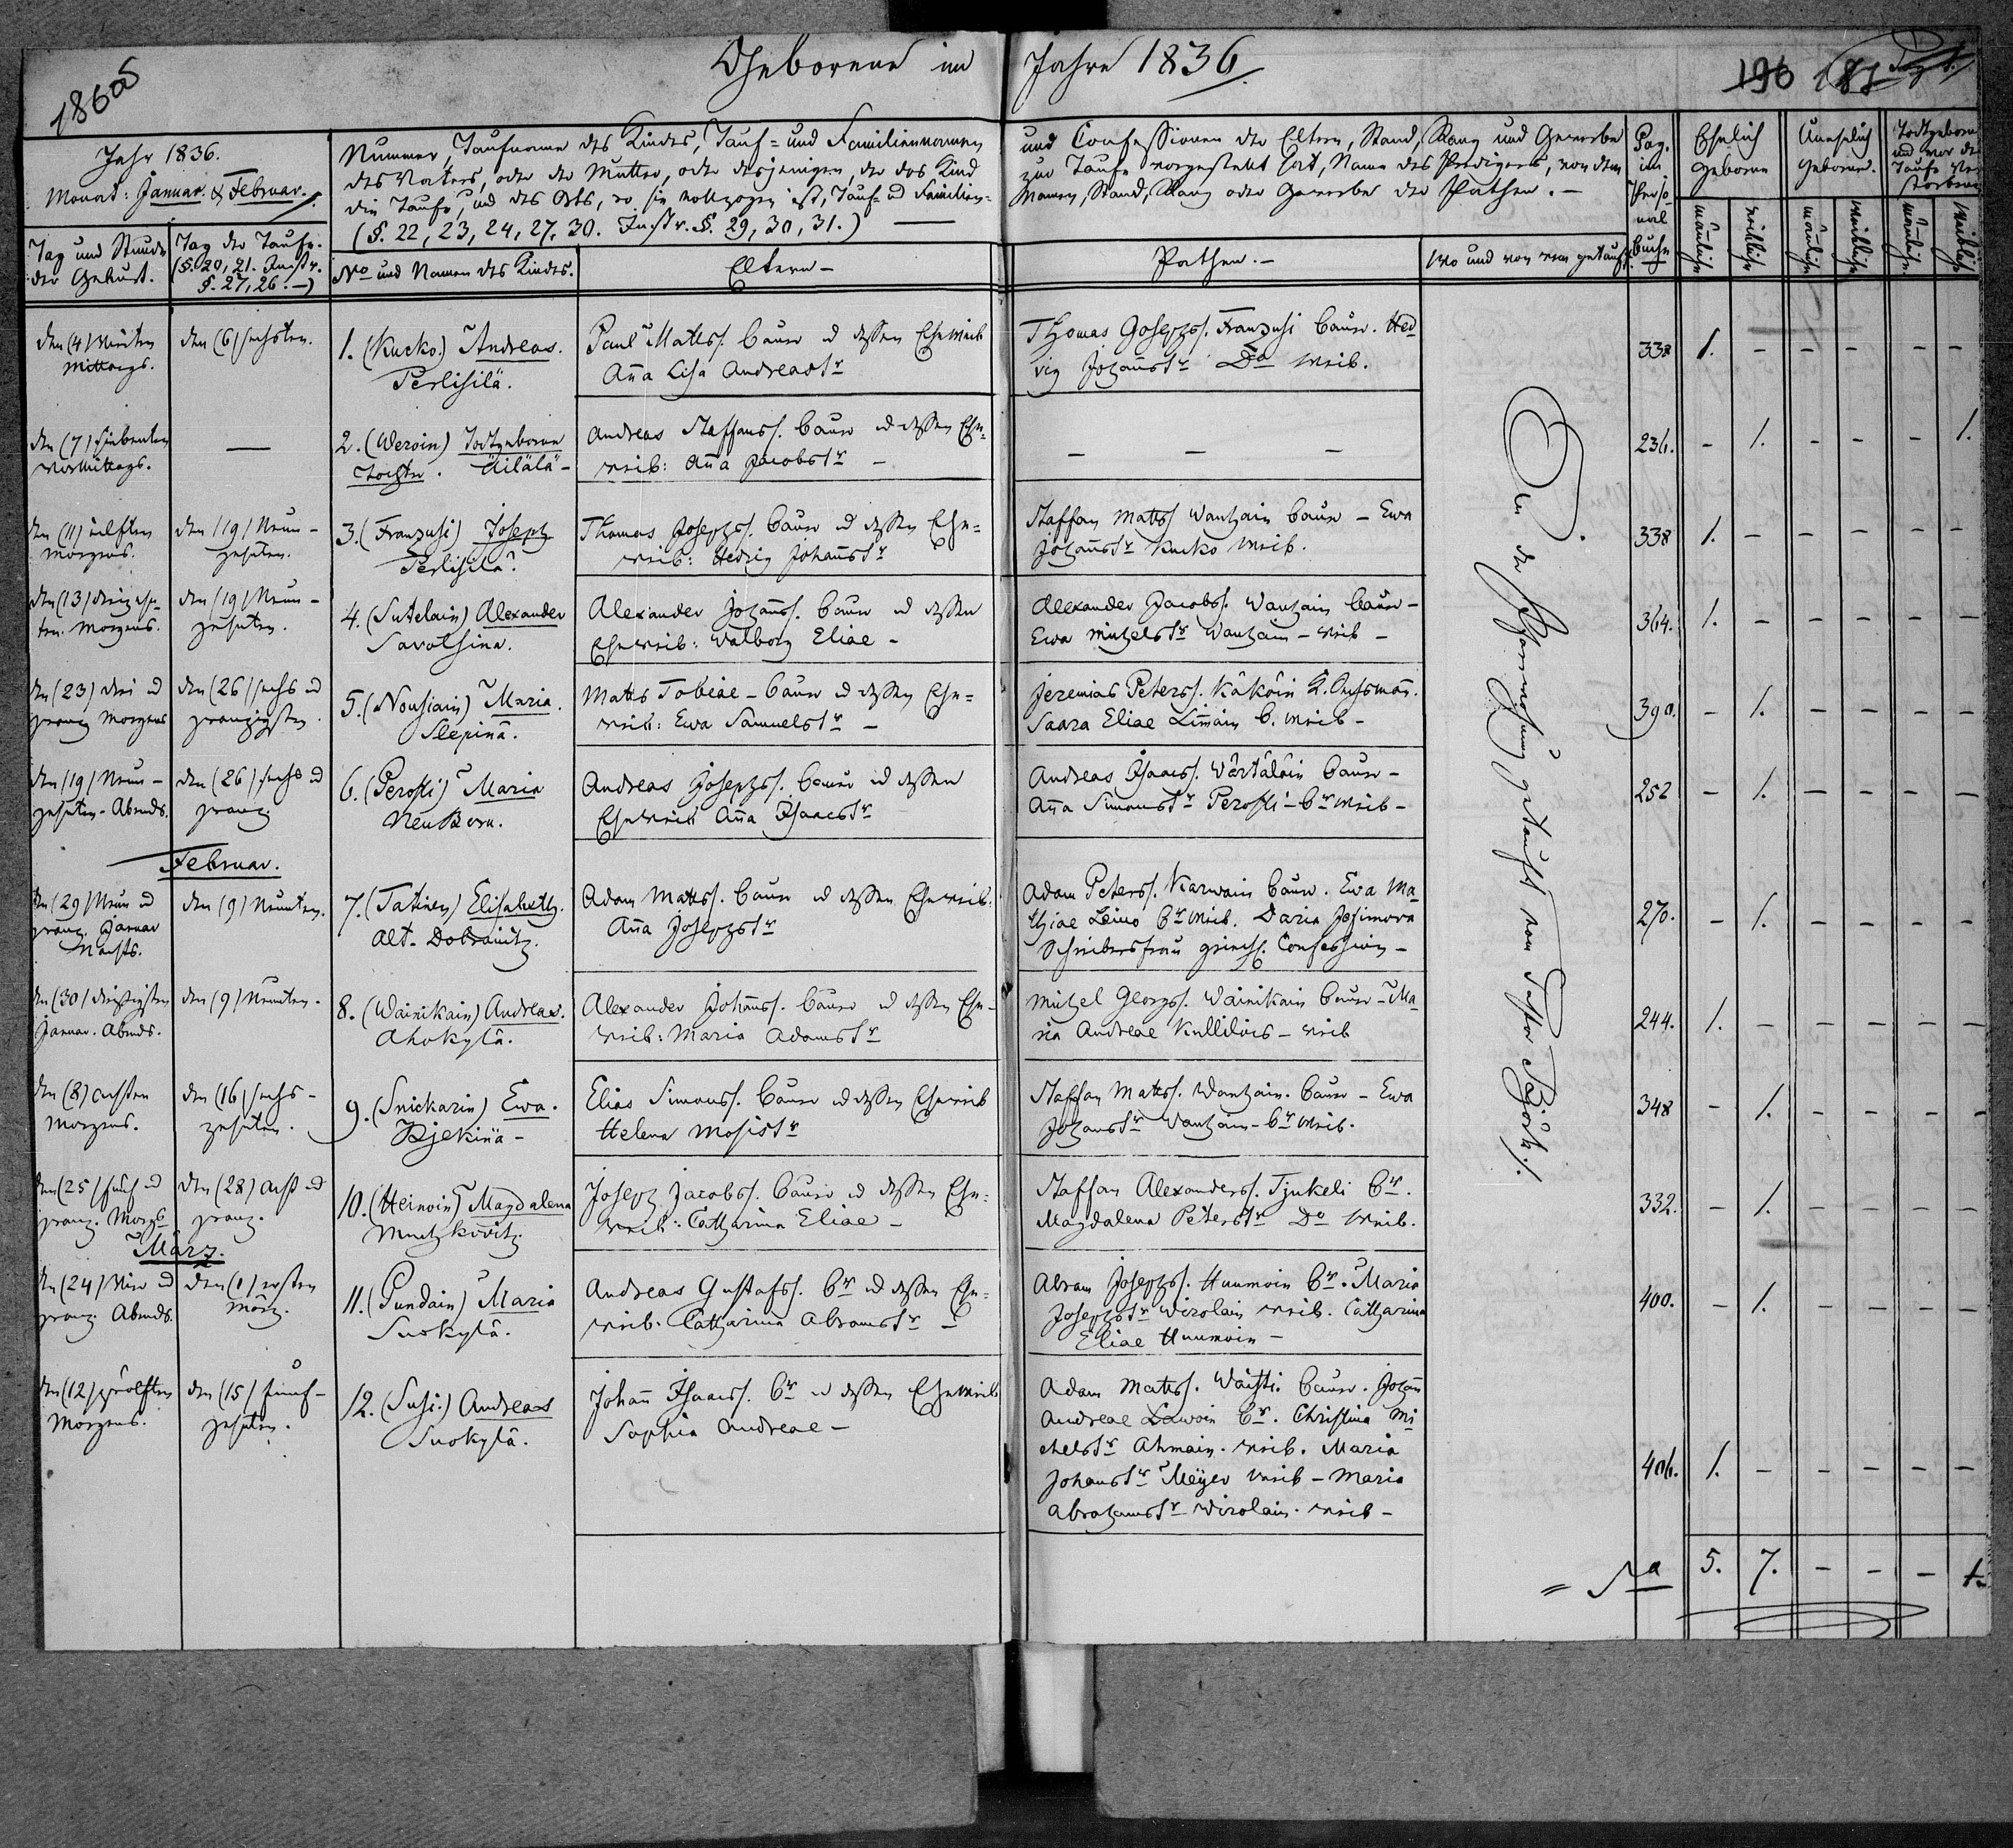 Geborene im Jahre 1836
186
196
Jahr 1836.
Monat: Januar. & Februar.
Nummer, Taufname des Kindes, Tauf= und Familiennamen
des Vaters, oder der Mutter, oder desjenigen, der das Kind
die Taufe, und des Orts, wo sie vollzogen ist, Tauf= und Familien=
(§. 22, 23, 24, 27, 30. Instr. §. 29, 30, 31.)
und Confessionen der Eltern, Stand, Rang und Gewerbe
zur Taufe vorgestellt hat, Name des Predigers, von dem
Namen, Stand, Rang oder Gewerbe der Pathen. –
Pag. im Perso=nal Buche
Ehelich geboren
Unehelich geboren.
Todtgeboren und vor der Taufe Ver storbene
männlich weiblich männlich weiblich männlich weiblich
Tag und Stunde der Geburt.
Tag der Taufe. (§. 20, 21. Instr. §. 27, 26. –)
No und Namen des Kindes.
Eltern –
Pathen. –
Wo und von wem getauft.
den (4) vierten Mittags.
den (6) sechsten.
1. (Kucko.) Andreas. Perlisilä.
Paul Matts. Bauer ud dessen Eheweib
Aña Lisa Andreastr
Thomas Josephs. Franzusi Bauer. Hed
vig Johañstr Do Weib.
338 1. – – – – –
den (7) siebenten Vormittags.
—
2. (Weroin) Todtgeborne Tochter. Äilälä –
Andreas Staffans. Bauer ud dessen Ehe=
weib: Aña Jacobstr –
– – –
236. – 1. – – – 1.
den (11) eilften Morgens.
den (19) Neun=zehnten.
3. (Franzusi) Joseph Perlisilä.
Thomas Josephs. Bauer ud dessen Ehe=
weib: Hedvig Johañstr
Staffan Matts Wanhain Bauer – Ewa
Johañstr Kucko Weib.
338 1. – – – – –
den (13) dreizehn=ten. Morgens.
den (19) Neun=zehnten.
4. (Sutelain) Alexander Savolsina.
Alexander Johañs. Bauer ud dessen
Eheweib: Walborg Eliae –
Alexander Jacobs. Wanhain Bauer –
Ewa Michelstr Wanhain – Weib –
364. 1. – – – – –
den (23) drei ud zwanz Morgens
den (26) sechs ud zwanzigsten.
5. (Nousiain) Maria. Slepinä.
Matts Tobiae – Bauer ud dessen Ehe=
weib: Ewa Samuelstr –
Jeremias Peterss. Käköin
Saara Eliae Limäin B. Weib –
390. – 1. – – – –
den (19) Neun=zehnten – Abends.
den (26) sechs ud zwanz.
6. (Peroski) Maria
Andreas Josephs. Bauer ud dessen
Eheweib Aña Isaacstr
Andreas Isaacs. Wärtäläin Bauer –
Aña Simonstr Peroski – Br Weib –
252 – 1. – – – –
Februar.
den (29) Neun ud zwanz. Januar Nachts.
den (9) Neunten.
7. (Tatinen) Elisabeth. Alt.
Adam Matts. Bauer ud dessen Eheweib.
Aña Josephstr
Adam Peterss. Karwain Bauer. Ewa Ma
thiae Leino Br Weib. Daria Jesimova
Schreibersfrau griech. Confession –
270. – 1. – – – –
den (30) dreissigsten Januar. Abends.
den (9) Neunten.
8. (Wainikain) Andreas. Ahokylä.
Alexander Johañs. Bauer ud dessen Ehe=
weib: Maria Adamstr
Michel Georgs. Wainikain Bauer – Ma
ria Andreae Kullilois – Weib
244. 1. – – – – –
den (8) achten Morgens.
den (16) sechs=zehnten.
9. (Snickarin) Ewa.
Elias Simons. Bauer ud dessen Eheweib
Helena Mosistr
Staffan Matts. Wanhain. Bauer – Ewa
Johanstr Wanhain – Br Weib.
348 – 1. – – – –
den (25) fünf ud zwanz. Morgs
den (28) acht ud zwanz.
10. (Heinoin) Magdalena
Joseph Jacobs. Bauer ud dessen Ehe=
weib: Catharina Eliae –
Staffan Alexanders. Tjukeli Br.
Magdalena Peterstr Do Weib.
332. – 1. – – – –
März.
den (24) vier ud zwanz. Abends.
den (1) ersten März.
11. (Pundain) Maria Suokylä.
Andreas Gustafs. Br ud dessen Ehe=
weib. Catharina Abramstr –
Abram Josephs. Huumoin Br. Maria
Josephstr Wirolain Weib. Catharina
Eliae Huumoin –
400. – 1. – – – –
den (12) zwölften Morgens.
den (15) fünf=zehnten.
12. (Susi.) Andreas Suokylä.
Johañ Isaacs. Br ud dessen Eheweib
Sophia Andreae –
Adam Matts. Waisti. Bauer. Johañ
Andreae Br. Christina Mi
chelstr Ahmain. Weib. Maria
Johanstr Meyer Weib – Maria
Abrahamstr Wirolain. Weib –
406. 1. – – – – –
In der getauft vom Pastor Björk.
= Sa 5. 7. – – – 1.